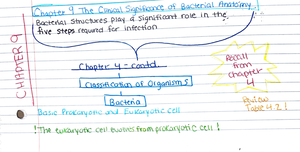 Chapter 4 The Clinical Significance of Bacterial Anatomy...
Bacterial Structures play a significant role in the
five steps required for infection.
CHAPTER 9
Chapter 4 - contd...
Classification of Organisms
Bacteria
Recall
from
chapter
4
Basic Prokaryotic and Eukaryotic cell
Review
Table 4.2!
! The eukaryotic cell evolves from prokaryotic cell!